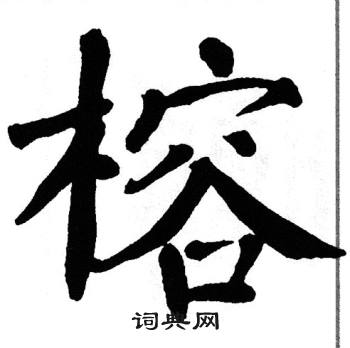 榕
词典网